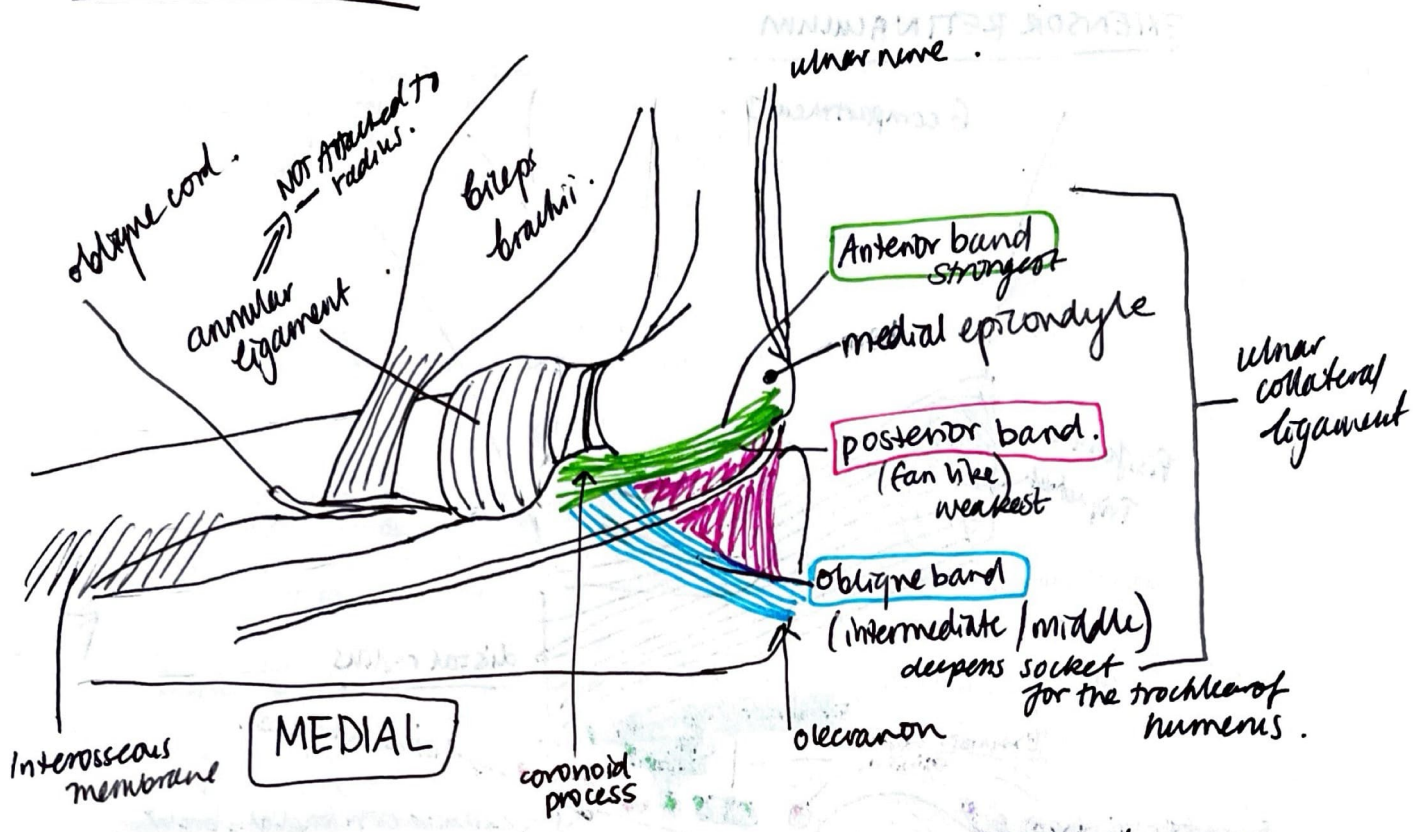 ulnar nerve.
oblique cord.
NOT Attached to
radius.
annular
ligament
biceps
brachii.
Anterior band
strongest
medial epicondyle
posterior band.
(fan like)
weakest
oblique band
(intermediate / middle)
deepens socket
for the trochlea of
humerus.
ulnar
collateral
ligament
olecranon
coronoid
process
MEDIAL
Interosseous
membrane